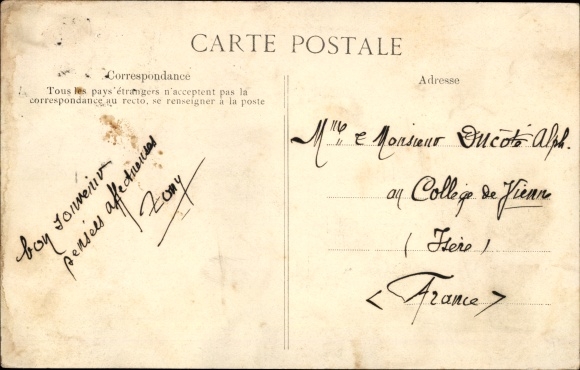 CARTE POSTALE
Correspondance
Tous les pays étrangers n'acceptent pas la
correspondance au recto, se renseigner à la poste
Adresse
bon souvenir
pensées affectueuses
Zony
Mme & Monsieur Ducoté Alph.
au Collège de Vienne
(Isère)
<France>